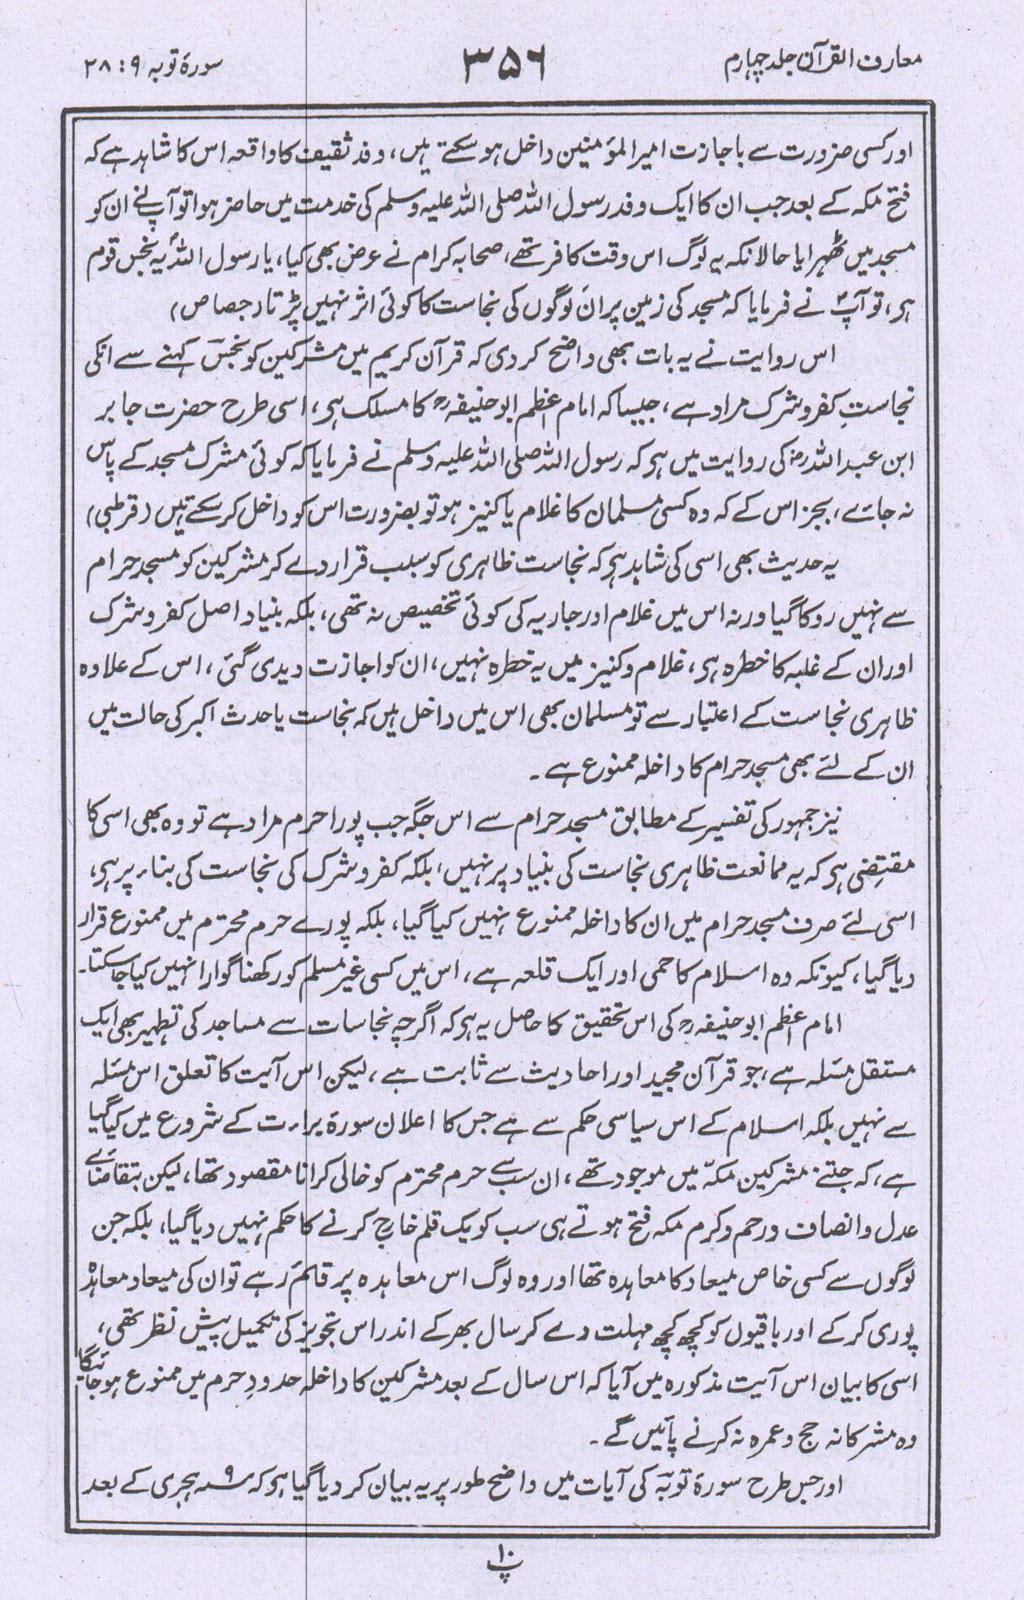 معارف القرآن جلد چہارم
۳۵۶
سورۂ توبہ ۹ : ۲۸
اور کسی ضرورت سے باجازت امیر المؤمنین داخل ہو سکتے ہیں، وفد ثقیف کا واقعہ اس کا شاہد ہے کہ
فتح مکہ کے بعد جب ان کا ایک وفد رسول اللہ صلی اللہ علیہ وسلم کی خدمت میں حاضر ہوا تو آپ نے ان کو
مسجد میں ٹھہرایا حالانکہ یہ لوگ اس وقت کافر تھے، صحابہ کرام نے عرض بھی کیا، یا رسول اللہ یہ نجس قوم
ہی، تو آپ نے فرمایا کہ مسجد کی زمین پر ان لوگوں کی نجاست کا کوئی اثر نہیں پڑتا (جصاص)
اس روایت نے یہ بات بھی واضح کر دی کہ قرآن کریم میں مشرکین کو نجس کہنے سے انکی
نجاستِ کفر و شرک مراد ہے، جیسا کہ امام اعظم ابو حنیفہؒ کا مسلک ہی، اسی طرح حضرت جابر
ابن عبد اللہ رض کی روایت میں ہو کہ رسول اللہ صلی اللہ علیہ وسلم نے فرمایا کہ کوئی مشرک مسجد کے پاس
نہ جائے، بجز اس کے کہ وہ کسی مسلمان کا غلام یا کنیز ہو تو بضرورت اس کو داخل کر سکتے ہیں (قرطبی)
یہ حدیث بھی اسی کی شاہد ہو کہ نجاست ظاہری کو سبب قرار دے کر مشرکین کو مسجد حرام
سے نہیں روکا گیا ورنہ اس میں غلام اور جاریہ کی کوئی تخصیص نہ تھی، بلکہ بنیاد اصل کفر و شرک
اور ان کے غلبہ کا خطرہ ہی، غلام و کنیز میں یہ خطرہ نہیں، ان کو اجازت دیدی گئی، اس کے علاوہ
ظاہری نجاست کے اعتبار سے تو مسلمان بھی اس میں داخل ہیں کہ نجاست یا حدث اکبر کی حالت میں
ان کے لئے بھی مسجد حرام کا داخلہ ممنوع ہے۔
نیز جمہور کی تفسیر کے مطابق مسجد حرام سے اس جگہ جب پورا حرم مراد ہے تو وہ بھی اسی کا
مقتضی ہو کہ یہ ممانعت ظاہری نجاست کی بنیاد پر نہیں، بلکہ کفر و شرک کی نجاست کی بناء پر ہی،
اسی لئے صرف مسجد حرام میں ان کا داخلہ ممنوع نہیں کیا گیا، بلکہ پورے حرم محترم میں ممنوع قرار
دیا گیا، کیونکہ وہ اسلام کا حمی اور ایک قلعہ ہے، اس میں کسی غیر مسلم کو رکھنا گوارا نہیں کیا جا سکتا۔
امام اعظم ابو حنیفہؒ کی اس تحقیق کا حاصل یہ ہو کہ اگرچہ نجاسات سے مساجد کی تطہیر بھی ایک
مستقل مسئلہ ہے، جو قرآن مجید اور احادیث سے ثابت ہے، لیکن اس آیت کا تعلق اس مسئلہ
سے نہیں بلکہ اسلام کے اس سیاسی حکم سے ہے جس کا اعلان سورۂ براءت کے شروع میں کیا گیا
ہے، کہ جتنے مشرکین مکہ میں موجود تھے، ان سب سے حرم محترم کو خالی کرانا مقصود تھا، لیکن بتقاضائے
عدل و انصاف و رحم و کرم مکہ فتح ہوتے ہی سب کو یک قلم خارج کرنے کا حکم نہیں دیا گیا، بلکہ جن
لوگوں سے کسی خاص میعاد کا معاہدہ تھا اور وہ لوگ اس معاہدہ پر قائم رہے تو ان کی میعاد معاہدہ
پوری کر کے اور باقیوں کو کچھ کچھ مہلت دے کر سال بھر کے اندر اس تجویز کی تکمیل پیش نظر تھی،
اسی کا بیان اس آیت مذکورہ میں آیا کہ اس سال کے بعد مشرکین کا داخلہ حدودِ حرم میں ممنوع ہو جائیگا
وہ مشرکانہ حج و عمرہ نہ کرنے پائیں گے۔
اور جس طرح سورۂ توبہ کی آیات میں واضح طور پر یہ بیان کر دیا گیا ہو کہ ۹ سنہ ہجری کے بعد
پ ۱۰